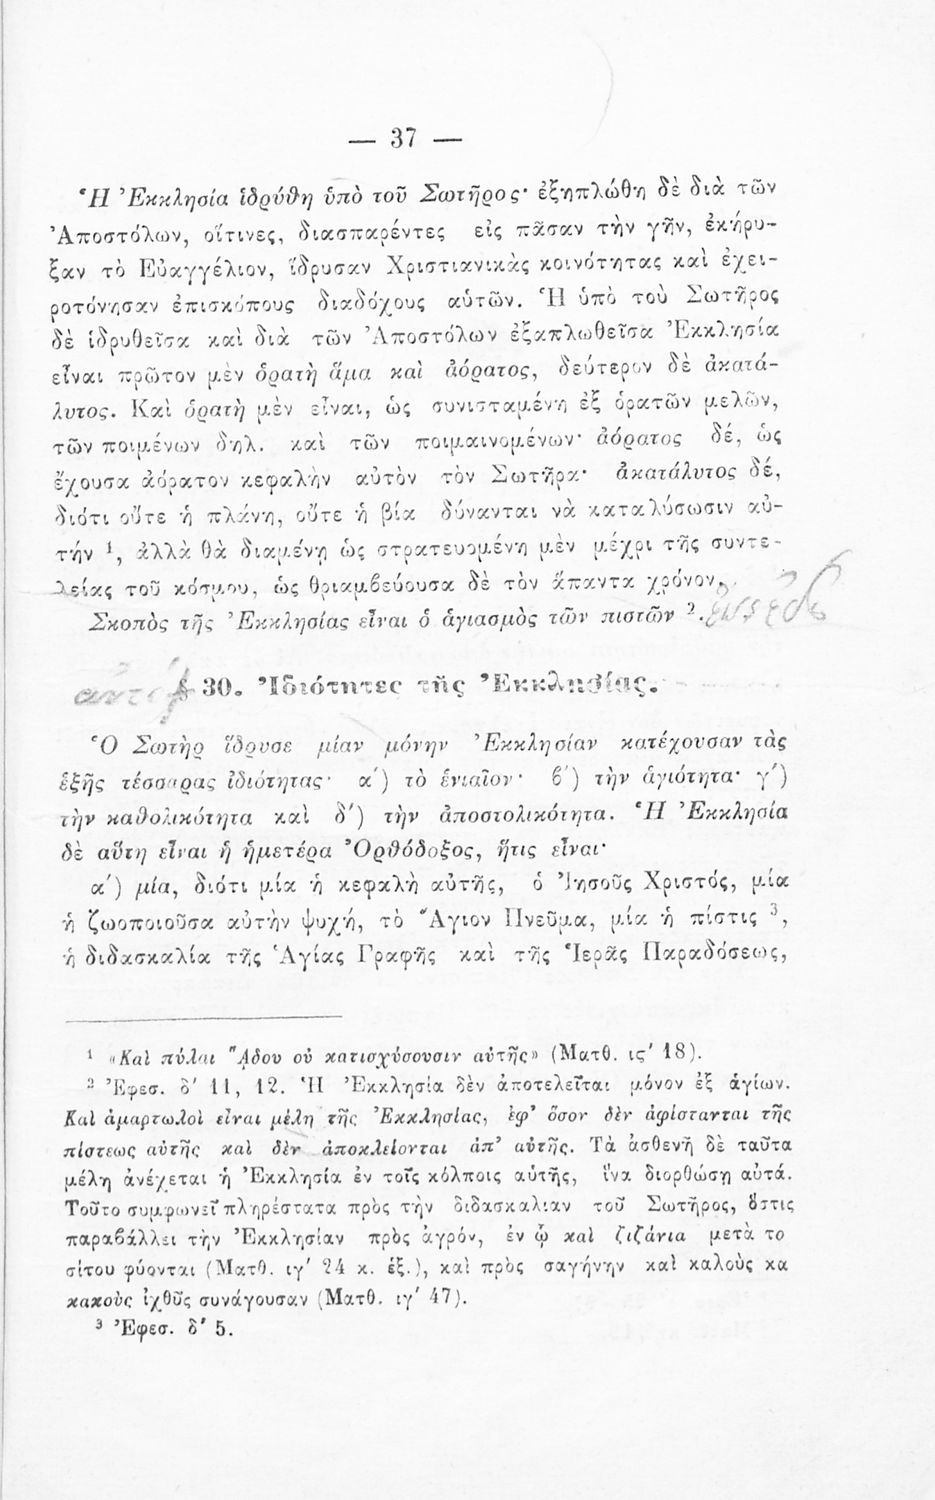 — 37 —
Ἡ Ἐκκλησία ἱδρύθη ὑπὸ τοῦ Σωτῆρος· ἐξηπλώθη δὲ διὰ τῶν
Ἀποστόλων, οἵτινες, διασπαρέντες εἰς πᾶσαν τὴν γῆν, ἐκήρυ-
ξαν τὸ Εὐαγγέλιον, ἵδρυσαν Χριστιανικὰς κοινότητας καὶ ἐχει-
ροτόνησαν ἐπισκόπους διαδόχους αὑτῶν. Ἡ ὑπὸ τοῦ Σωτῆρος
δὲ ἱδρυθεῖσα καὶ διὰ τῶν Ἀποστόλων ἐξαπλωθεῖσα Ἐκκλησία
εἶναι πρῶτον μὲν ὁρατὴ ἅμα καὶ ἀόρατος, δεύτερον δὲ ἀκατά-
λυτος. Καὶ ὁρατὴ μὲν εἶναι, ὡς συνισταμένη ἐξ ὁρατῶν μελῶν,
τῶν ποιμένων δηλ. καὶ τῶν ποιμαινομένων· ἀόρατος δέ, ὡς
ἔχουσα ἀόρατον κεφαλὴν αὐτὸν τὸν Σωτῆρα· ἀκατάλυτος δέ,
διότι οὔτε ἡ πλάνη, οὔτε ἡ βία δύνανται νὰ καταλύσωσιν αὐ-
τήν ¹, ἀλλὰ θὰ διαμένῃ ὡς στρατευομένη μὲν μέχρι τῆς συντε-
λείας τοῦ κόσμου, ὡς θριαμβεύουσα δὲ τὸν ἅπαντα χρόνον.
Σκοπὸς τῆς Ἐκκλησίας εἶναι ὁ ἁγιασμὸς τῶν πιστῶν ².
§ 30. Ἰδιότητες τῆς Ἐκκλησίας.
Ὁ Σωτὴρ ἵδρυσε μίαν μόνην Ἐκκλησίαν κατέχουσαν τὰς
ἑξῆς τέσσαρας ἰδιότητας· α΄) τὸ ἑνιαῖον· β΄) τὴν ἁγιότητα· γ΄)
τὴν καθολικότητα καὶ δ΄) τὴν ἀποστολικότητα. Ἡ Ἐκκλησία
δὲ αὕτη εἶναι ἡ ἡμετέρα Ὀρθόδοξος, ἥτις εἶναι·
α΄) μία, διότι μία ἡ κεφαλὴ αὐτῆς, ὁ Ἰησοῦς Χριστός, μία
ἡ ζωοποιοῦσα αὐτὴν ψυχή, τὸ Ἅγιον Πνεῦμα, μία ἡ πίστις ³,
ἡ διδασκαλία τῆς Ἁγίας Γραφῆς καὶ τῆς Ἱερᾶς Παραδόσεως,
¹ «Καὶ πύλαι Ἅδου οὐ κατισχύσουσιν αὐτῆς» (Ματθ. ις΄ 18).
² Ἐφεσ. δ΄ 11, 12. Ἡ Ἐκκλησία δὲν ἀποτελεῖται μόνον ἐξ ἁγίων.
Καὶ ἁμαρτωλοὶ εἶναι μέλη τῆς Ἐκκλησίας, ἐφ’ ὅσον δὲν ἀφίστανται τῆς
πίστεως αὐτῆς καὶ δὲν ἀποκλείονται ἀπ’ αὐτῆς. Τὰ ἀσθενῆ δὲ ταῦτα
μέλη ἀνέχεται ἡ Ἐκκλησία ἐν τοῖς κόλποις αὑτῆς, ἵνα διορθώσῃ αὐτά.
Τοῦτο συμφωνεῖ πληρέστατα πρὸς τὴν διδασκαλίαν τοῦ Σωτῆρος, ὅστις
παραβάλλει τὴν Ἐκκλησίαν πρὸς ἀγρόν, ἐν ᾧ καὶ ζιζάνια μετὰ το
σίτου φύονται (Ματθ. ιγ΄ 24 κ. ἑξ.), καὶ πρὸς σαγήνην καὶ καλοὺς κα
κακοὺς ἰχθῦς συνάγουσαν (Ματθ. ιγ΄ 47).
³ Ἐφεσ. δ΄ 5.